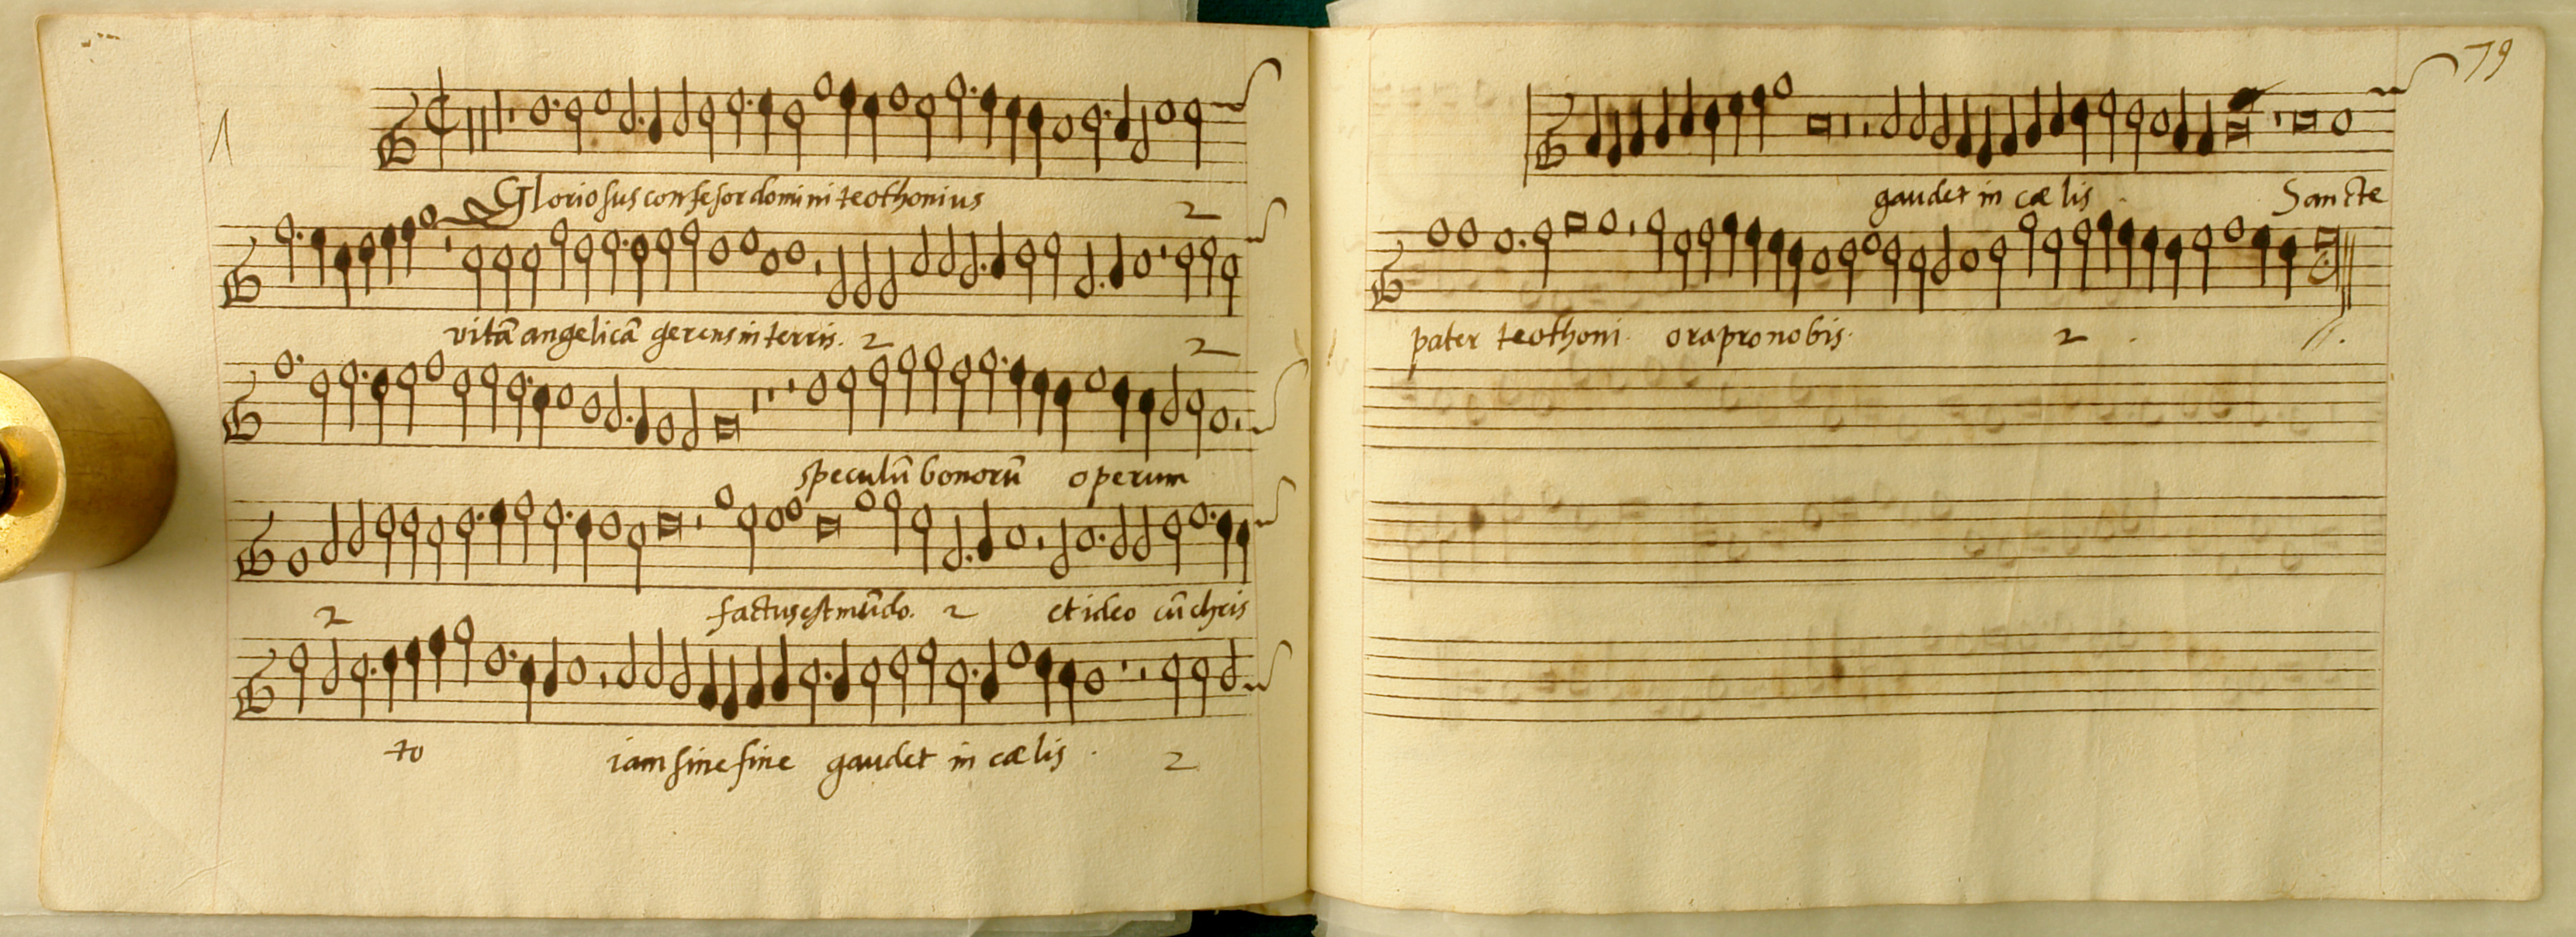 1
Gloriosus confesor domini teothonius 2
vitā angelicā gerens in terris. 2 2
speculū bonorū operum
2 factus est mūdo. 2 et ideo cū chris
to iam sine fine gaudet in cælis . 2
79
gaudet in cælis . Sancte
pater teothoni . ora pro nobis . 2 . //.